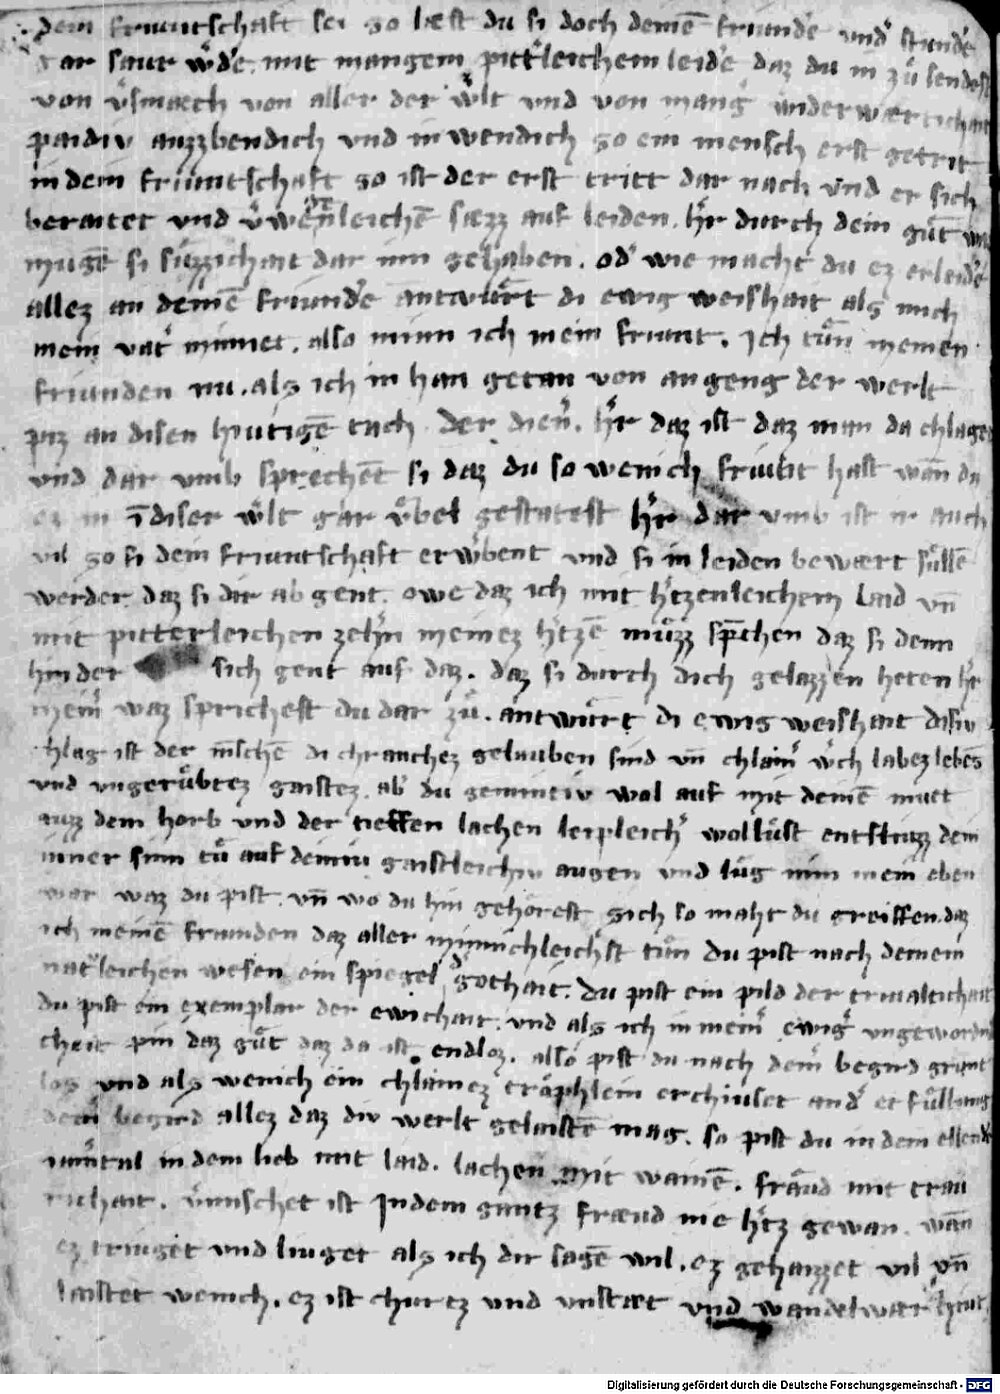 dein friuntschaft sei so læst du si doch deinē friundē vnd stundē
gar saur wͤdē. mit mangem pittͤleichem leide daz du in zuͤ sendest
von vͤsmæch von aller der wͤlt vnd von mangͤ anderwærtichait
paidiv auzzbendich vnd inwendich so ein mensch erst getrit
in dein friuntschaft so ist der erst tritt dar nach vnd er sich
beraitet vnd vͤwegēleichē sæzz auf leiden. hͤr durch dein guͤt waz
mugē si suͤzzichait dar inn gehaben. od' wie macht du ez erleidē
allez an deinē friundē antwuͤrt di ewig weishait als mich
mein vatͤ minnet. also minn ich mein friunt. Ich tuͤn meinen
friunden nu. als ich in han getan von angeng der werlt
piz an disen hiutigē tach. Der dienͤ. hͤr daz ist daz man da chlaget
vnd dar vmb sprechēt si daz du so wenich friunt hast wan du
ez in ī diser wͤlt gar vͤbel gestatest hͤr dar vmb ist ir auch
vil so si dein friuntschaft erwͤbent vnd si in leiden bewært suͤllē
werder. daz si dir ab gent. owe daz ich mit hͤtzenleichem laid vn̄
mit pitterleichen zehͤn meinez hͤtzē muͤzz spͤchen daz si denn
hinder sich gent auf daz. daz si durch dich gelazzen heten hͤr
meinͤ waz sprichest du dar zuͤ. antwuͤrt di ewig weishait disiv
chlag ist der mēschē di chranchez gelauben sind vn̄ chlainͤ wͤch labez lebēs
vnd vngeruͤbtez gaistez. ab' du geminntiv wol auf mit deinē muet
auzz dem horb vnd der tieffen lachen leipleichͤ wolluͤst entsliuzz dein
inner sinn tuͤ auf deiniv gaistleichiv augen vnd luͤg nim mein eben
war waz du pist. vn̄ wo du hin gehoͤrest sich so maht du greiffen daz
ich meinē friunden daz aller minnichleichͤst tuͤn du pist nach deinem
natͤleichen wesen ein spiegel d' gothait. du pist ein pild der trivaltichait
du pist ein exemplar der ewichait. vnd als ich in meinͤ ewigͤ vngeworden
cheit pin daz guͤt daz da ist endloz. also pist du nach deinͤ begird grunt
los vnd als wenich ein chlainez traͤphlein erchiuset andͤ er fuͤllung
deinͤ begird allez daz div werlt gelaistē mag. so pist du in dem ellendē
iamͤtal in dem lieb mit laid. lachen mit wainē. fraͤud mit trau
richait. vͤmischet ist Indem gantz fræud nie hͤtz gewan. wan̄
ez triuget vnd liuget als ich dir sagē wil. ez gehaizzet vil vn̄
laistet wenich. ez ist churtz vnd vnstæt vnd wandelwær hiut